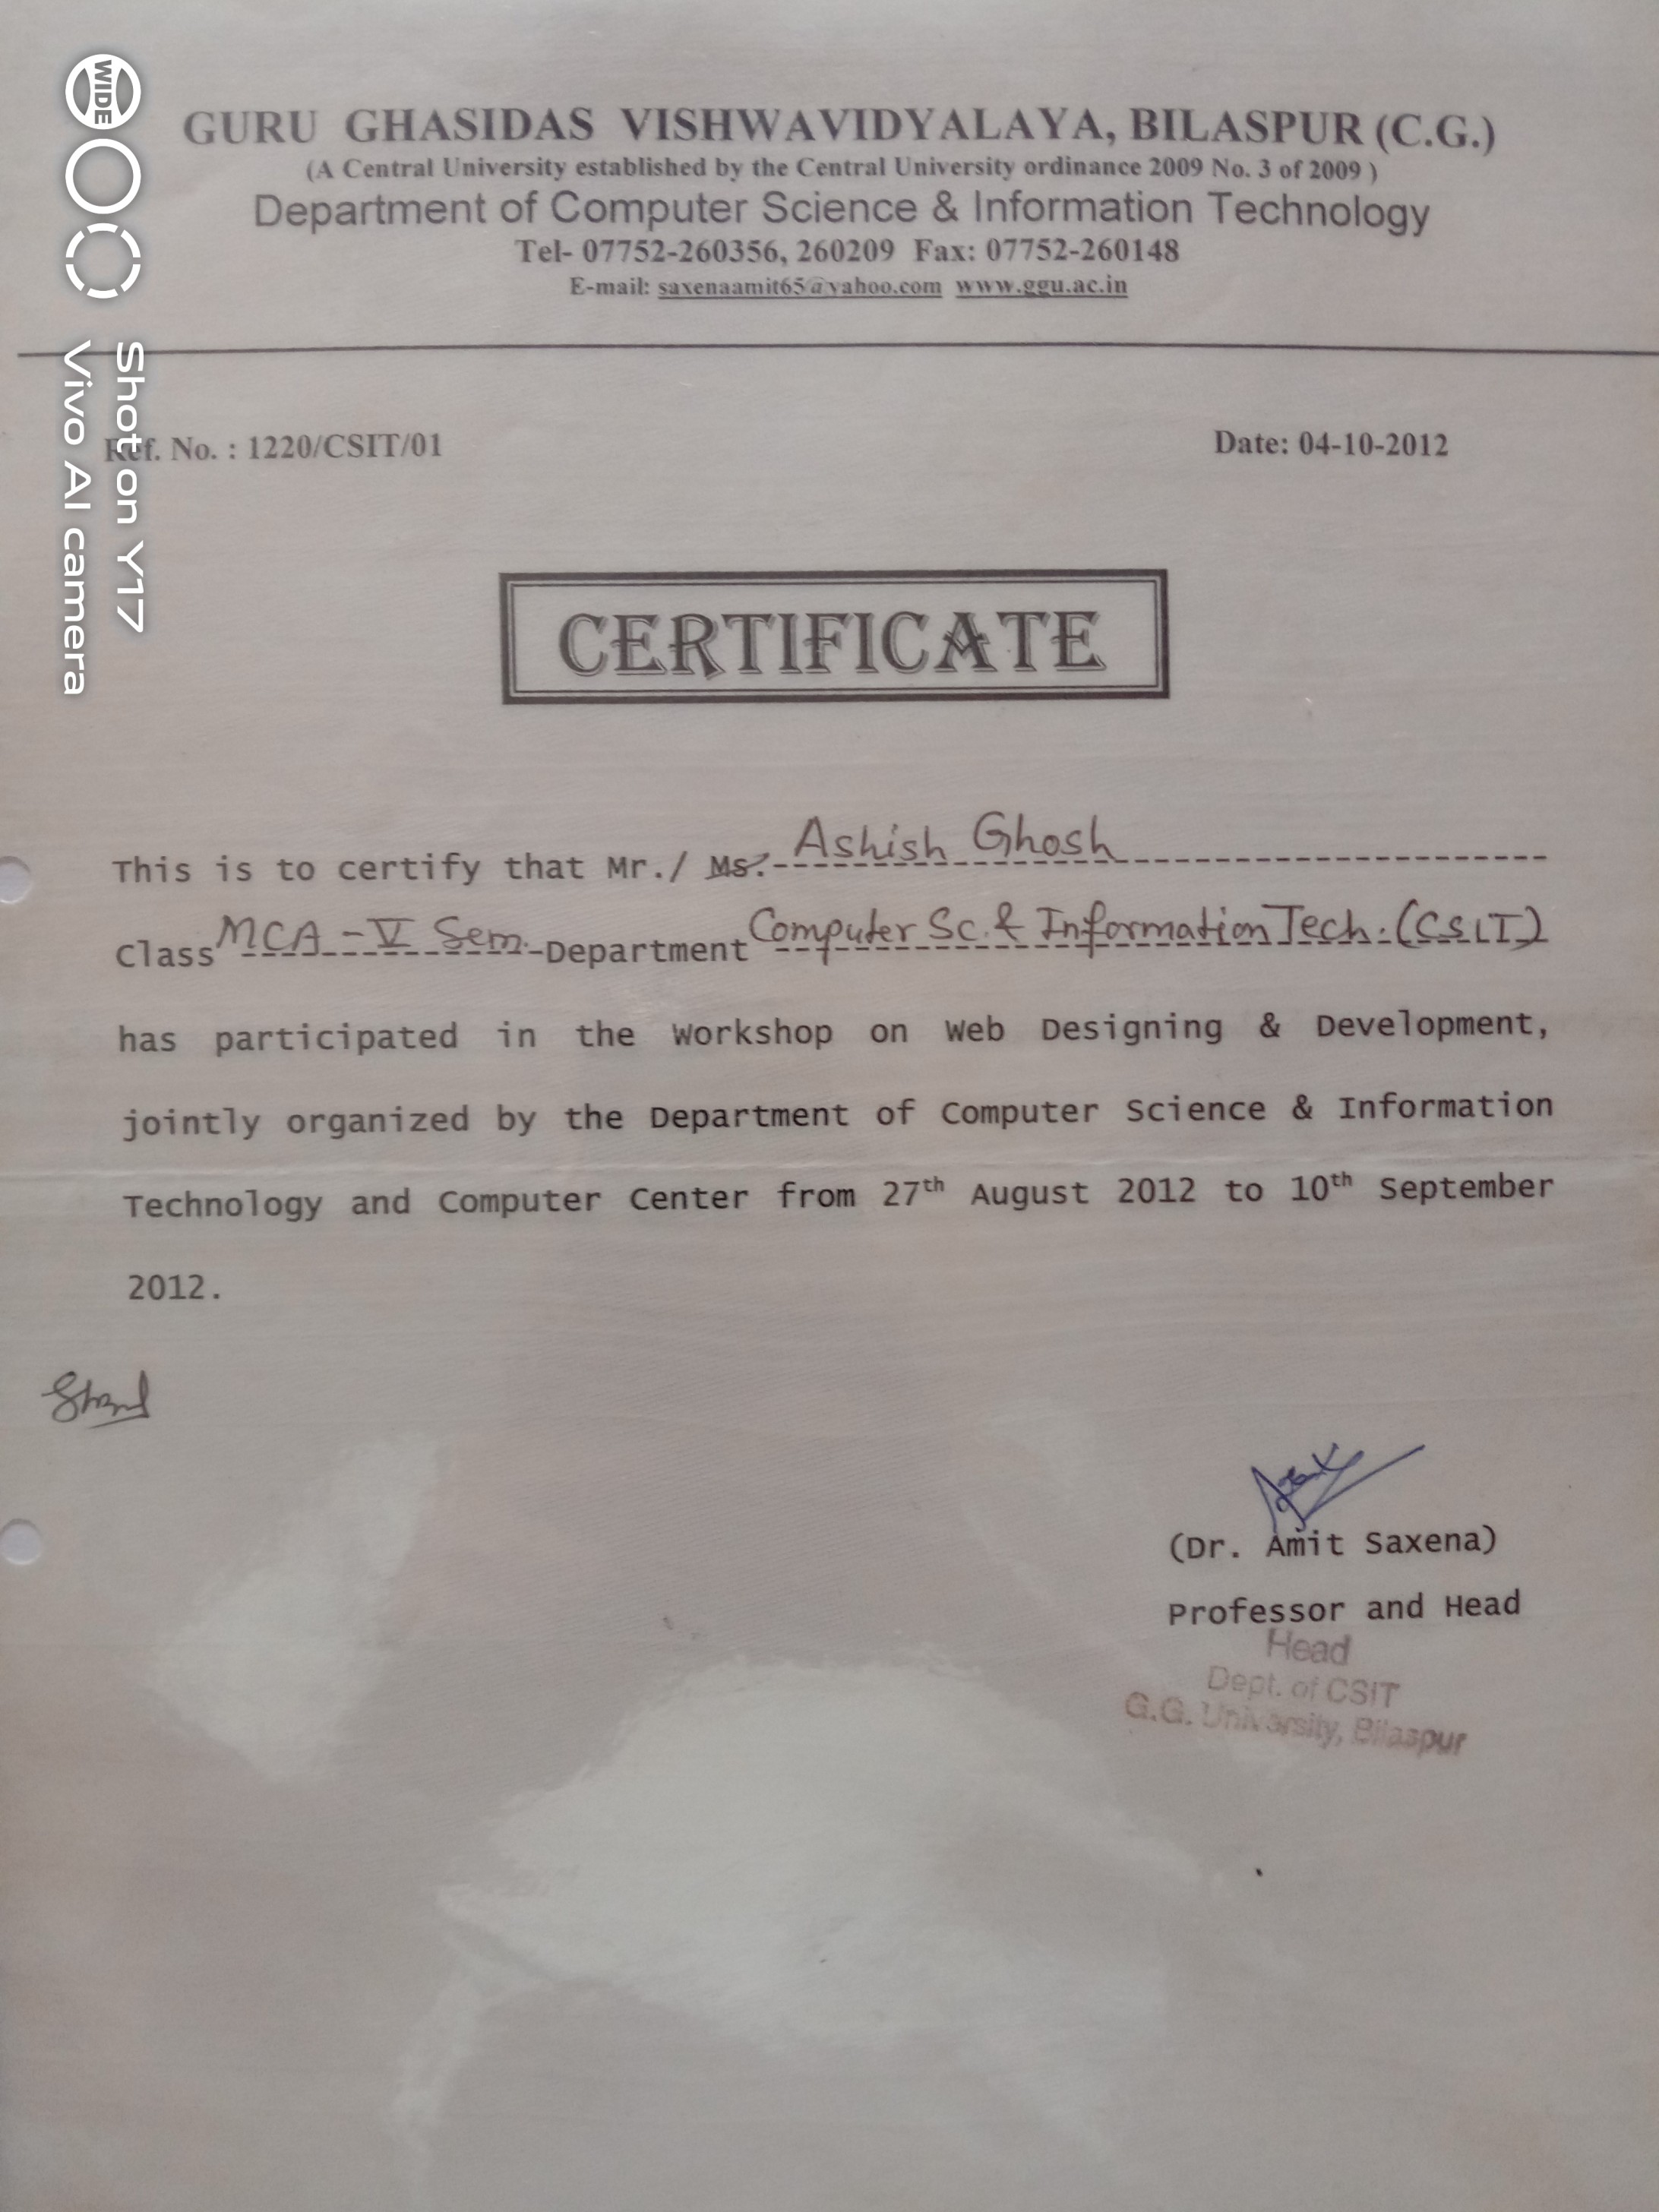 GURU GHASIDAS VISHWAVIDYALAYA, BILASPUR (C.G.)
(A Central University established by the Central University ordinance 2009 No. 3 of 2009 )
Department of Computer Science & Information Technology
Tel- 07752-260356, 260209 Fax: 07752-260148
E-mail: saxenaamit65@yahoo.com www.ggu.ac.in
Ref. No. : 1220/CSIT/01 Date: 04-10-2012
CERTIFICATE
This is to certify that Mr./ Ms. Ashish Ghosh
Class MCA - V Sem. Department Computer Sc. & Information Tech. (CSIT)
has participated in the Workshop on Web Designing & Development,
jointly organized by the Department of Computer Science & Information
Technology and Computer Center from 27th August 2012 to 10th September
2012.
(Dr. Amit Saxena)
Professor and Head
Head
Dept. of CSIT
G.G. University, Bilaspur
WIDE
Shot on Y17
Vivo AI camera